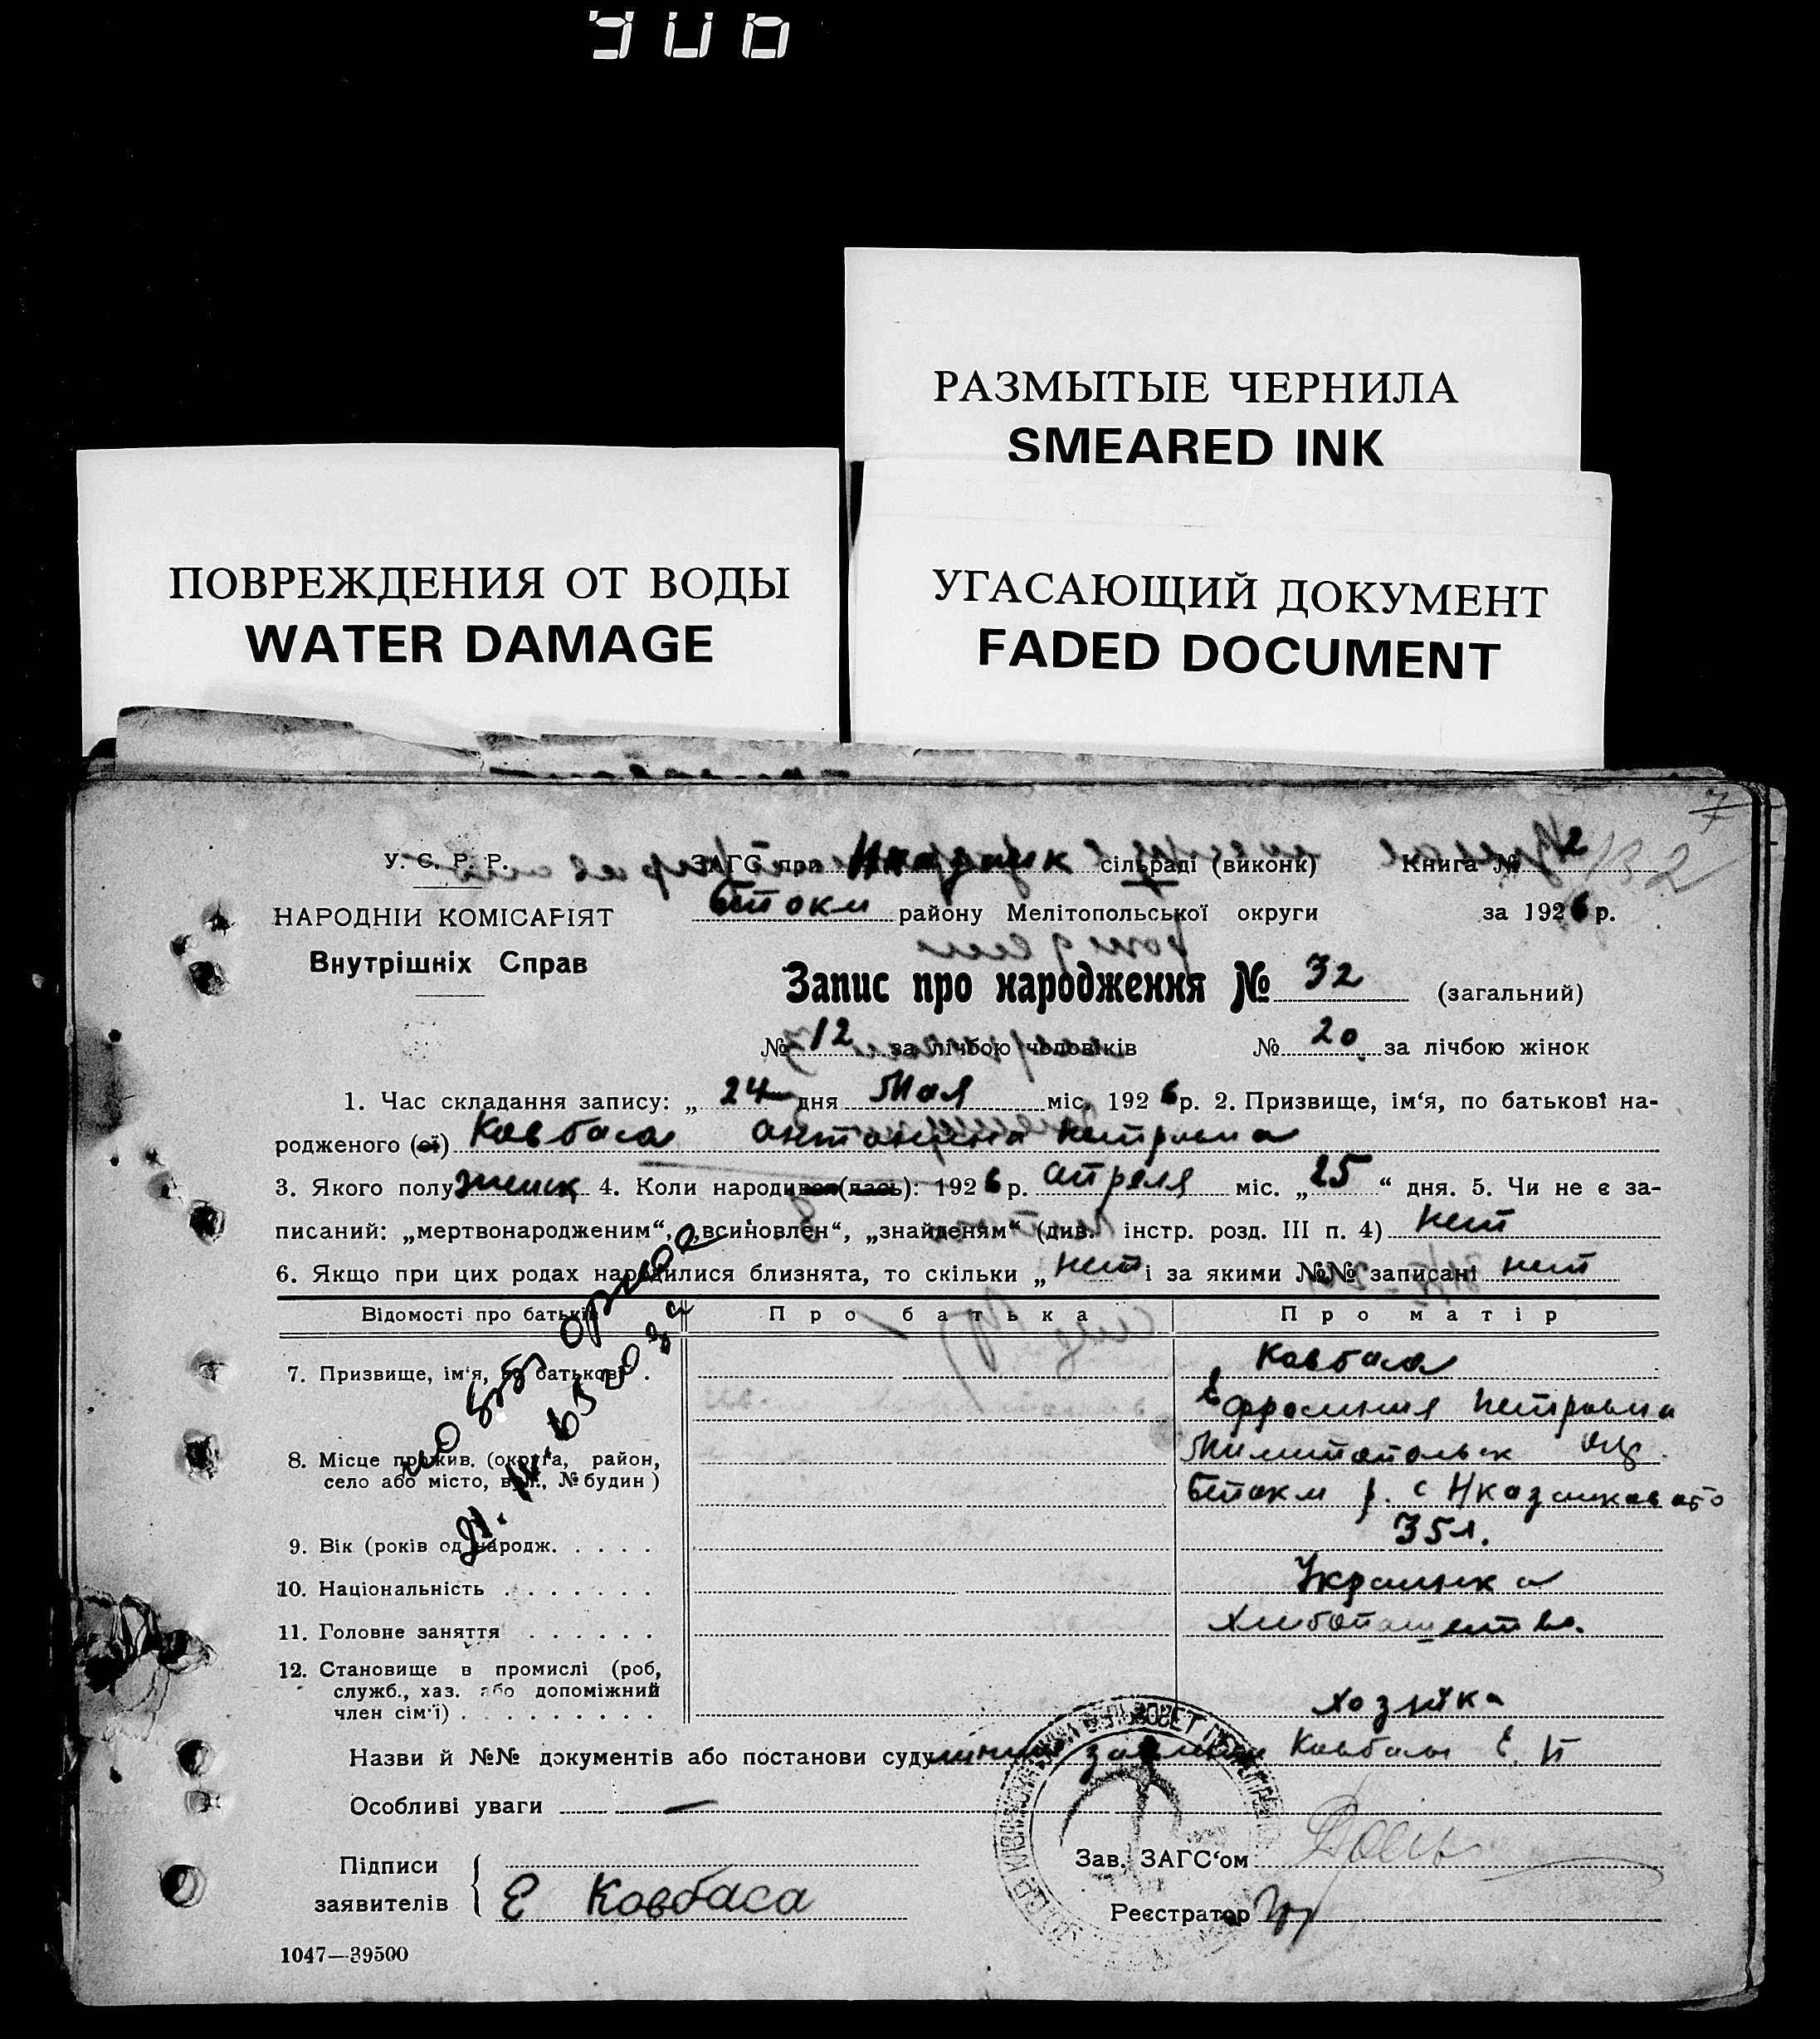 РАЗМЫТЫЕ ЧЕРНИЛА
SMEARED INK
ПОВРЕЖДЕНИЯ ОТ ВОДЫ
WATER DAMAGE
УГАСАЮЩИЙ ДОКУМЕНТ
FADED DOCUMENT
7
132
У. С. Р. Р. ЗАГС при сільраді (виконк) Книга № 2
НАРОДНІЙ КОМІСАРІЯТ
Внутрішніх Справ
району Мелітопольської округи за 1926 р.
Запис про народження № 32 (загальний)
№ 12 за лічбою чоловіків № 20 за лічбою жінок
1. Час складання запису: „ 24 дня Мая міс. 1926 р. 2. Призвище, ім'я, по батькові на-
родженого (ої) Ковбаса Антонина Петровна
3. Якого полу женск 4. Коли народився (лась): 1926 р. Апреля міс. „ 25 “ дня. 5. Чи не є за-
писаний: „мертвонародженим“, „всиновлен“, „знайденям“ (див. інстр. розд. III п. 4) нет
6. Якщо при цих родах народилися близнята, то скільки „ нет і за якими №№ записані нет
Відомості про батьків Про батька Про матір
7. Призвище, ім'я, по батькові . Ковбаса
Ефросиния Петровна
8. Місце прожив. (округа, район,
село або місто, вул., № будин) Мелитопольск окр.
р. с
9. Вік (років од народж. . . . . 35 л.
10. Національність . . . . . . . Украинка
11. Головне заняття . . . . . . Хлебопашество.
12. Становище в промислі (роб,
служб., хаз. або допоміжний
член сім'ї) . . . . . . . . . Хозяйка
Назви й №№ документів або постанови суду личное заявление Ковбасы Е. П
Особливі уваги —
Підписи
заявителів Е Ковбаса
Зав. ЗАГС'ом
Реєстратор
1047—39500